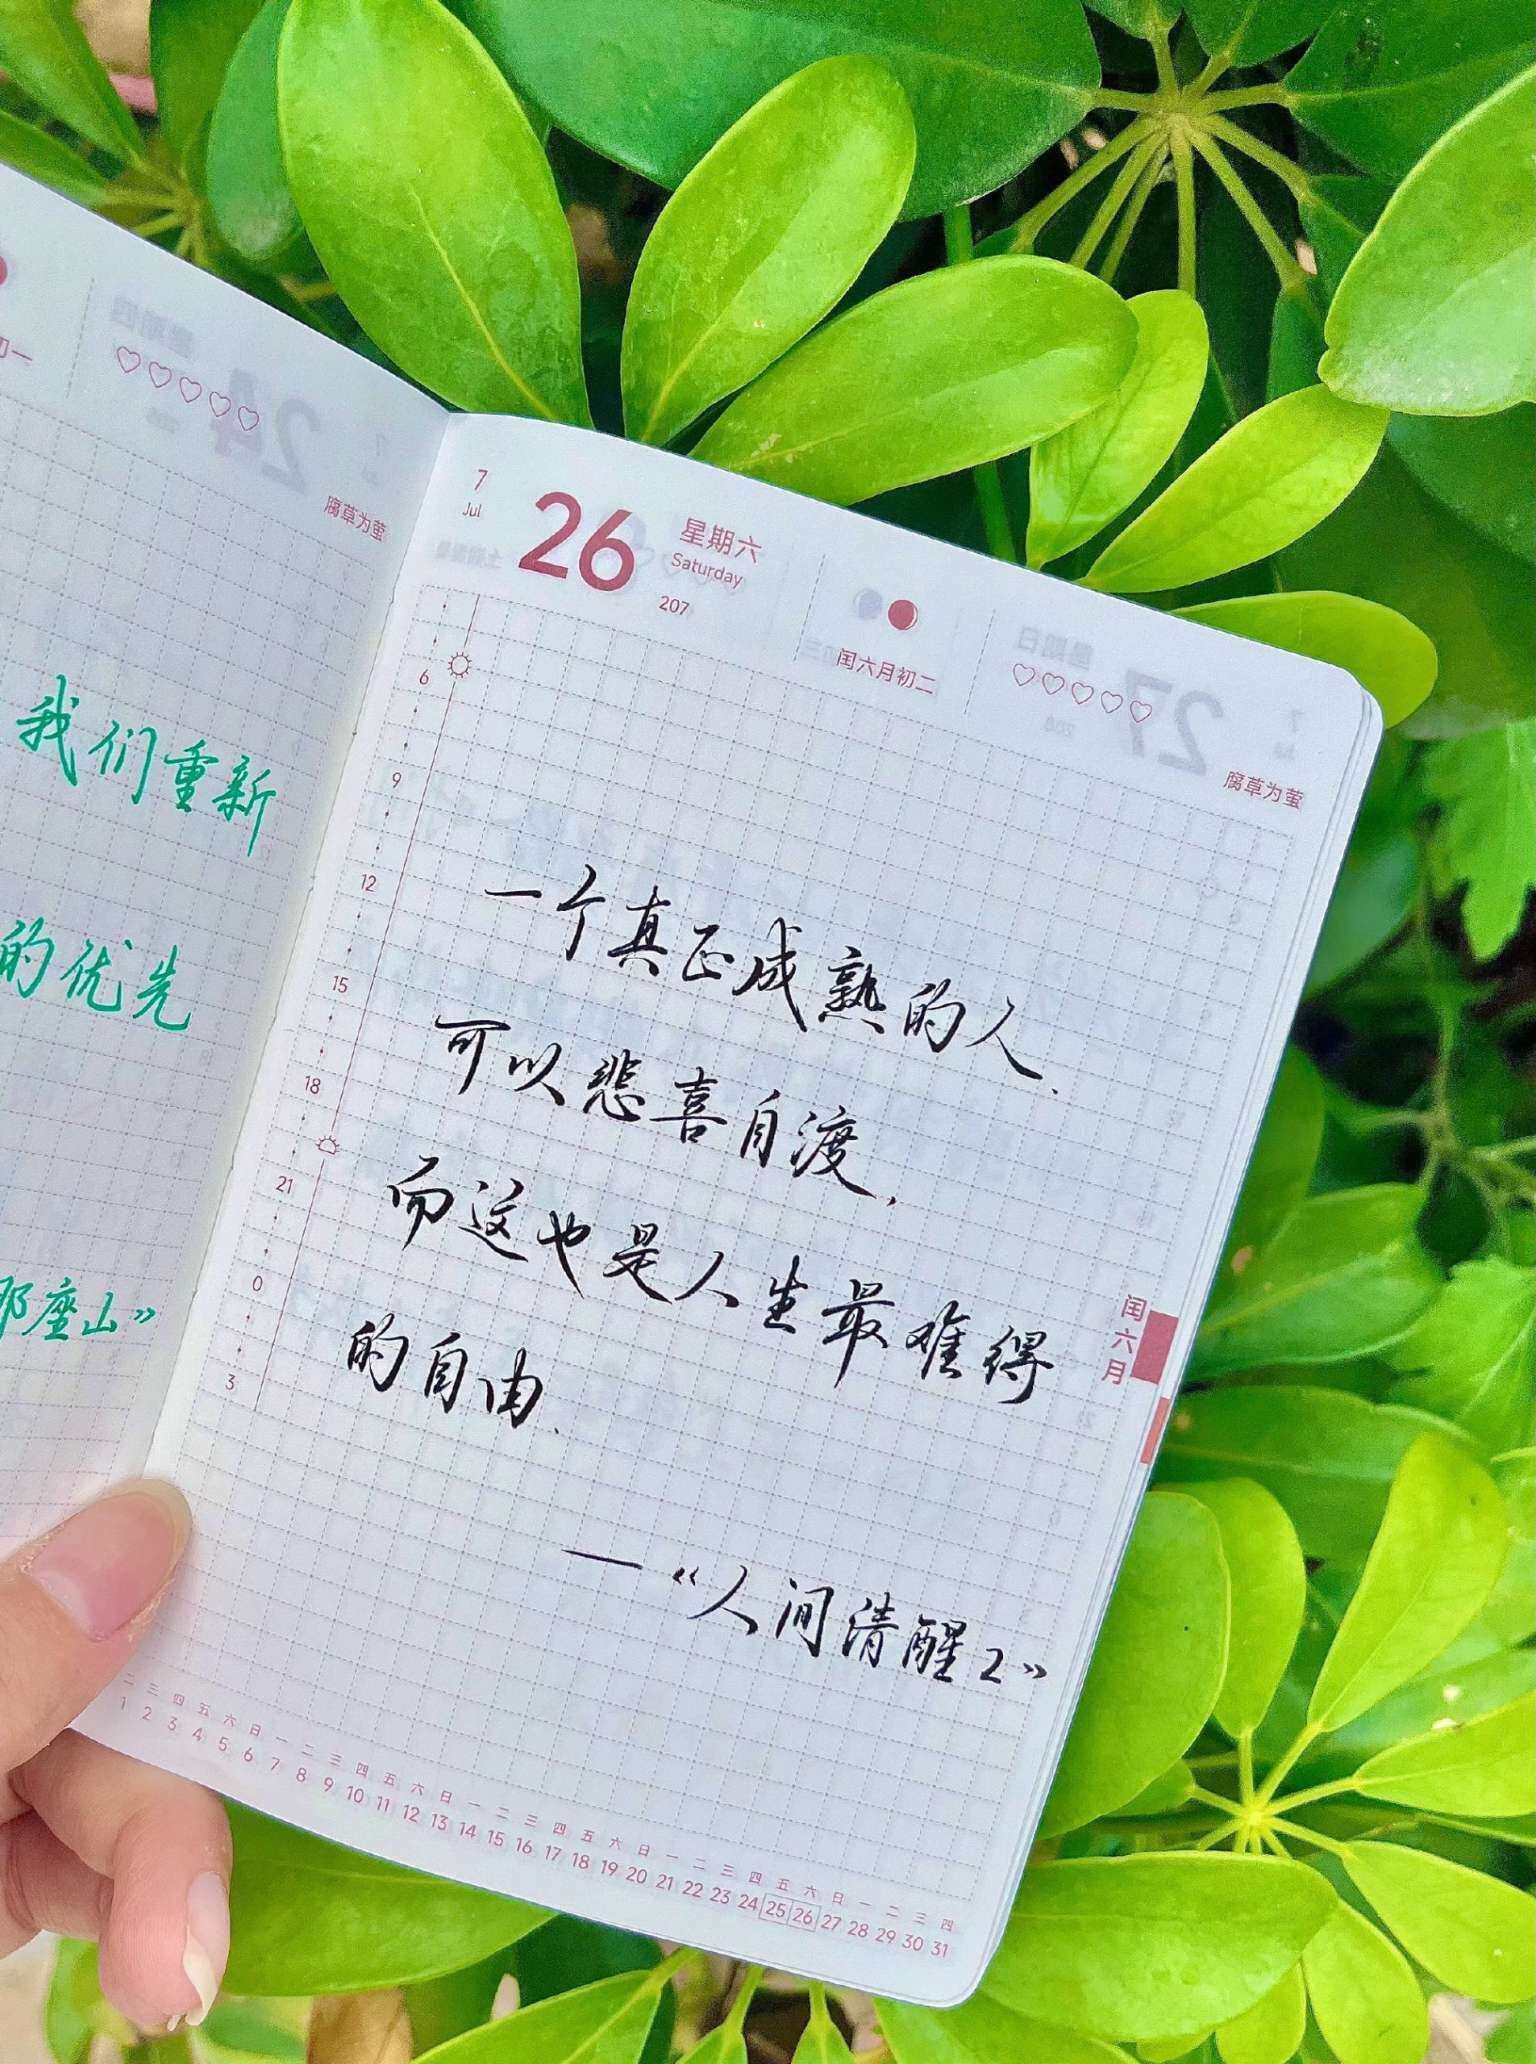 初一
腐草为萤
我们重新
的优先
那座山》
7
Jul
26
星期六
Saturday
207
闰六月初二
腐草为萤
6
9
12
15
18
21
0
3
一个真正成熟的人.
可以悲喜自渡,
而这也是人生最难得
的自由.
—《人间清醒2》
闰六月
二 三 四 五 六 日 一 二 三 四 五 六 日 一 二 三 四 五 六 日 一 二 三 四 五 六 日 一 二 三 四
1 2 3 4 5 6 7 8 9 10 11 12 13 14 15 16 17 18 19 20 21 22 23 24 25 26 27 28 29 30 31